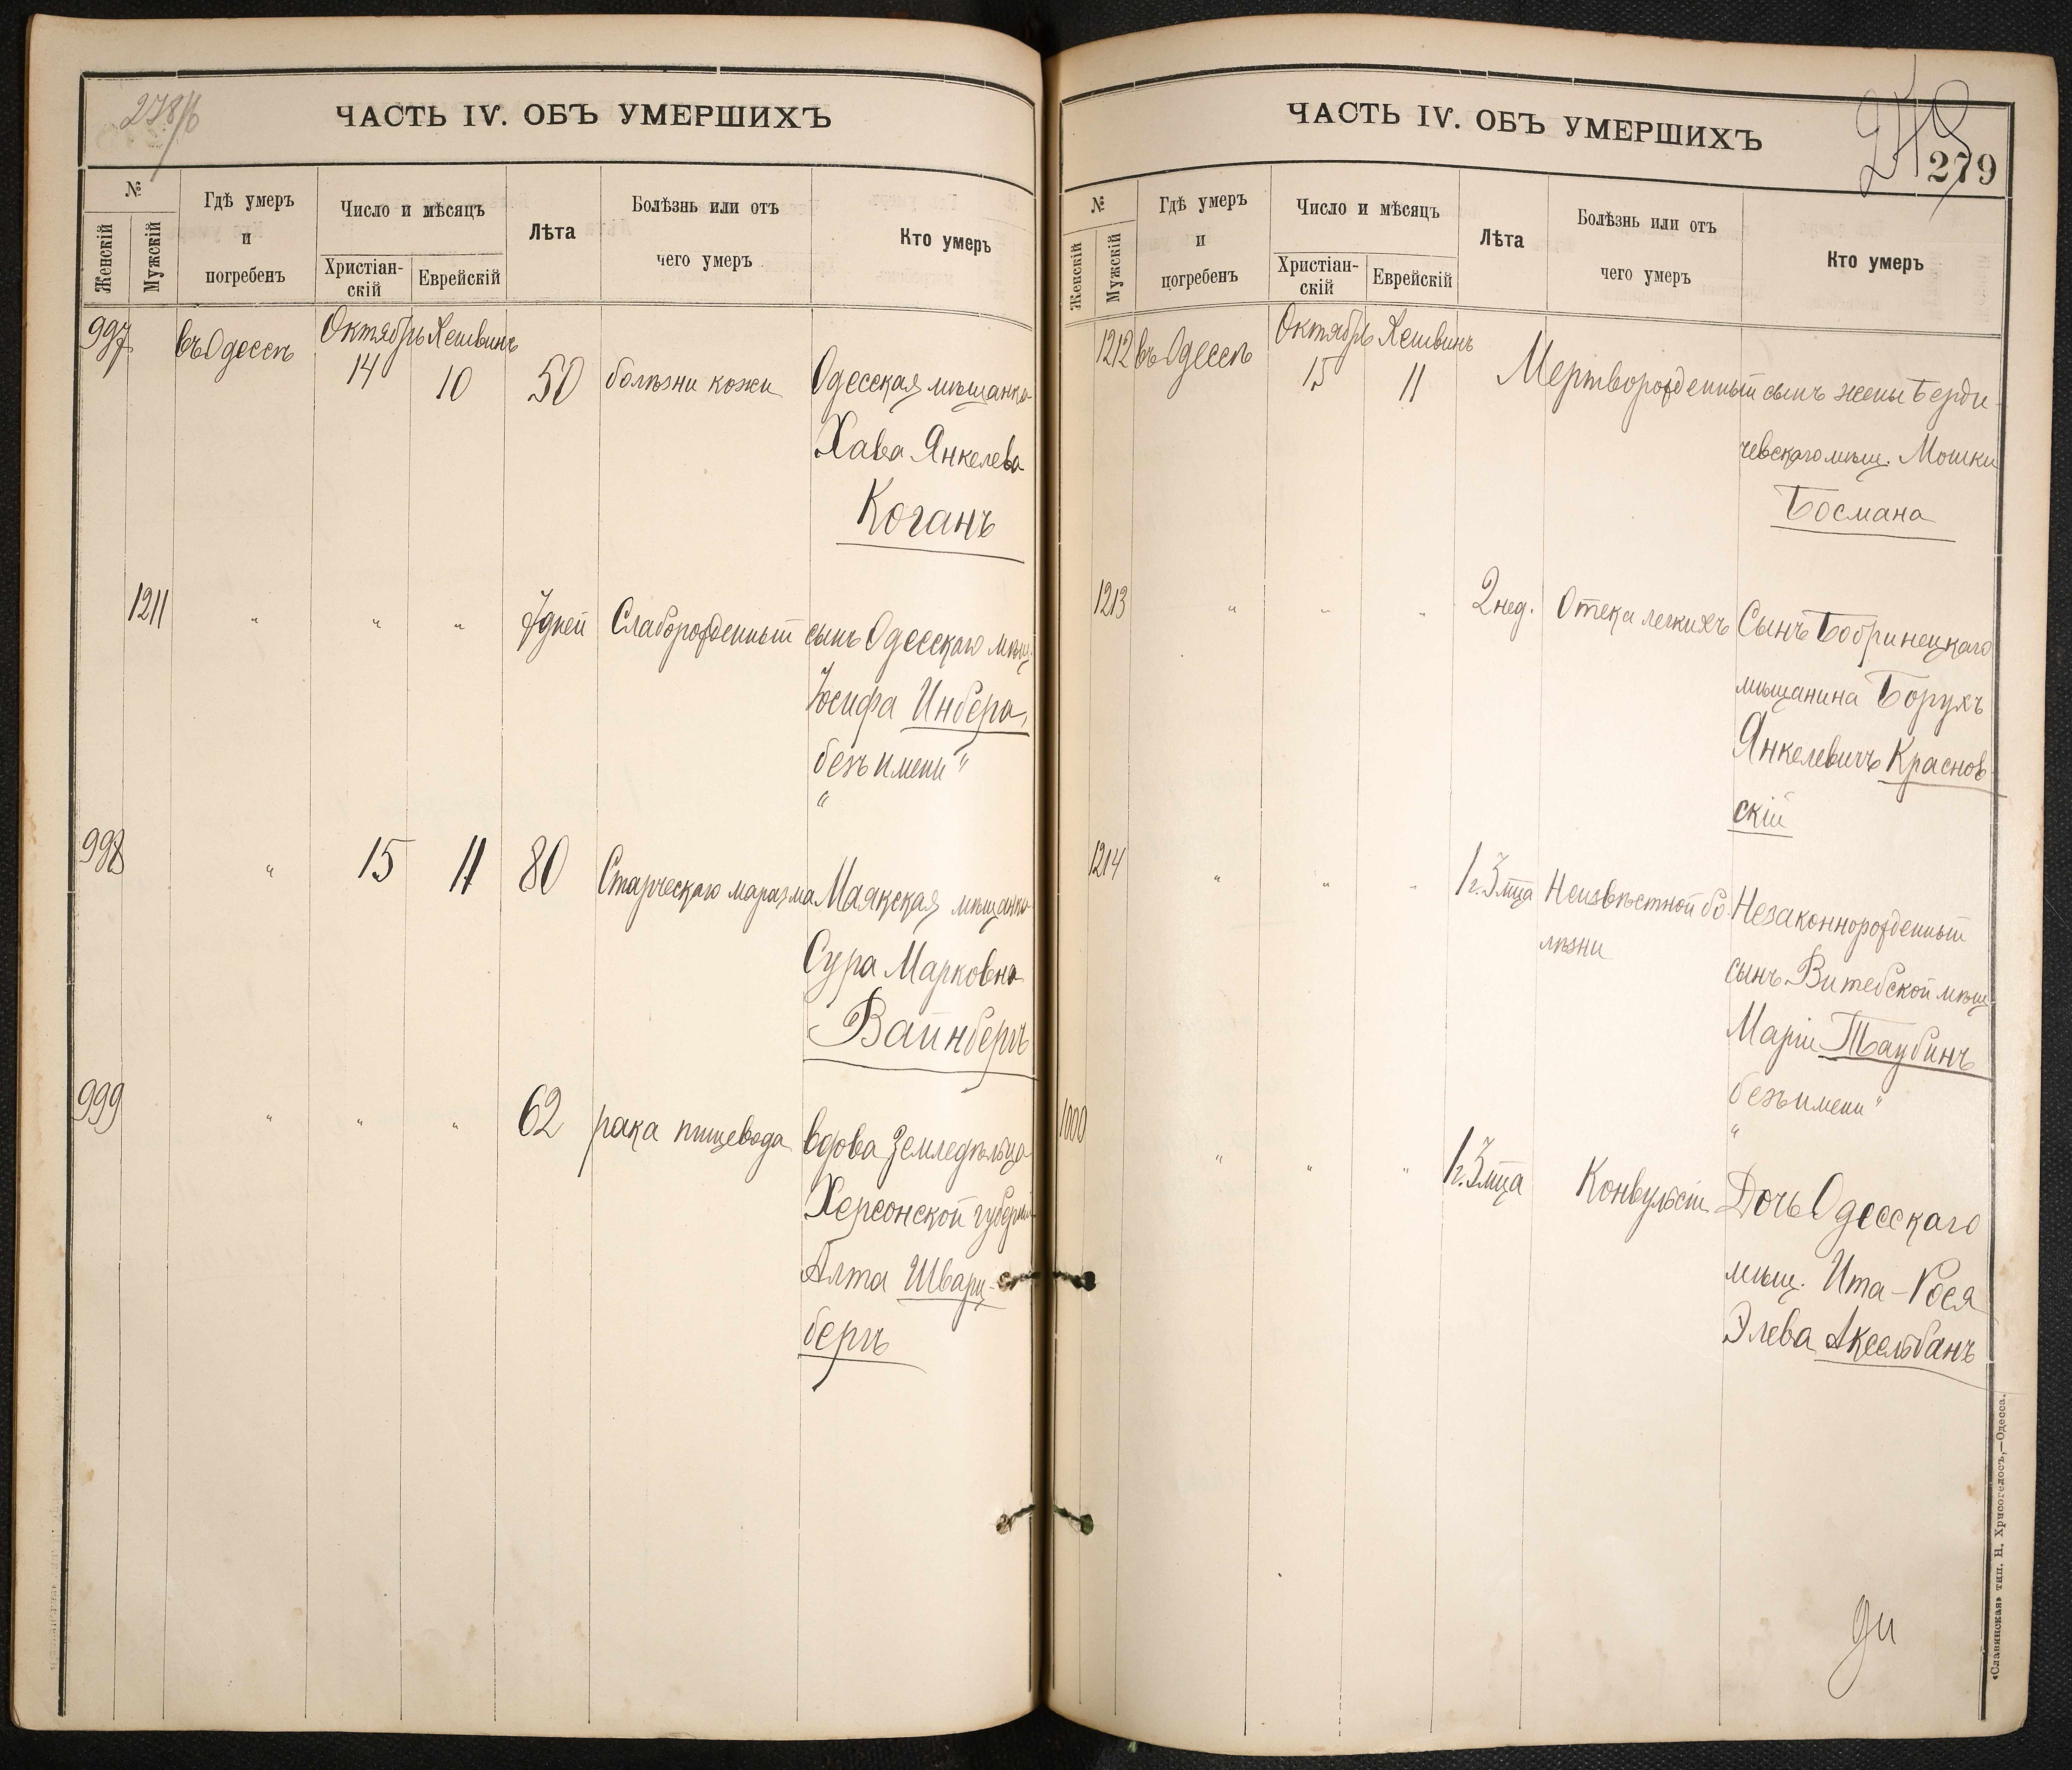 278/б
ЧАСТЬ IV. ОБЪ УМЕРШИХЪ
№
Женскій
Мужскій
Гдѣ умеръ
и
погребенъ
Число и мѣсяцъ
Христіан-
скій
Еврейскій
Лѣта
Болѣзнь или отъ
чего умеръ
Кто умеръ
997 въ Одессѣ Октябрь Хешвинъ
14 10 50 болѣзни кожи Одесская мѣщанка
Хава Янкелева
Коганъ
1211 " " " 7 дней Слаборожденный сынъ Одесскаго мѣщ.
Іосифа Инбера,
безъ имени "
"
998 " 15 11 80 Старческаго маразма Маякская мѣщанка
Сура Марковна
Вайнбергъ
999 " " " 62 рака пищевода вдова Земледѣльца
Херсонской губерніи
Алта Шварц-
бергъ
279
ЧАСТЬ IV. ОБЪ УМЕРШИХЪ
279
№
Женскій
Мужскій
Гдѣ умеръ
и
погребенъ
Число и мѣсяцъ
Христіан-
скій
Еврейскій
Лѣта
Болѣзнь или отъ
чего умеръ
Кто умеръ
1212 въ Одессѣ Октябрь Хешвинъ
15 11 Мертворожденный сынъ жены Берди-
чевскаго мѣщ. Мошки
Босмана
1213 " " " 2 нед. Отека легкихъ Сынъ Бобринецкаго
мѣщанина Борухъ
Янкелевичъ Краснов-
скій
1214 " " " 1 г. 3 мца Неизвѣстной бо- Незаконнорожденный
лѣзни сынъ Витебской мѣщ.
Маріи Таубинъ
безъ имени "
"
1000 " " " 1 г. 3 мца Конвульсіи Дочь Одесскаго
мѣщ. Ита-Рося
Элева Аксельбанъ
«Славянская» тип. Н. Хрисогелосъ,—Одесса.